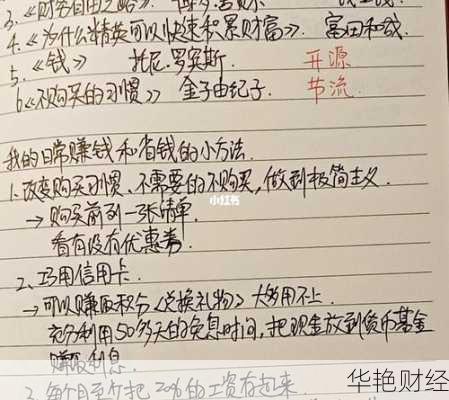 3.《财务自由之路》
4.《为什么精英可以快速积累财富》 富田和成
5.《钱》 托尼·罗宾斯. 开源
6《不购买的习惯》 金子由纪子. 节流
我的日常赚钱和省钱的小方法.
1.改变购买习惯、不需要的不购买,做到极简主义.
小红书
→购买前列一张清单.
看有没有优惠券.
2、巧用信用卡.
→可以赚取积分《兑换礼物》大多用不上.
充分利用50多天的免息时间,把现金放到货币基金
赚取利息.
3.每个月至少把20%的工资存起来
华艳财经